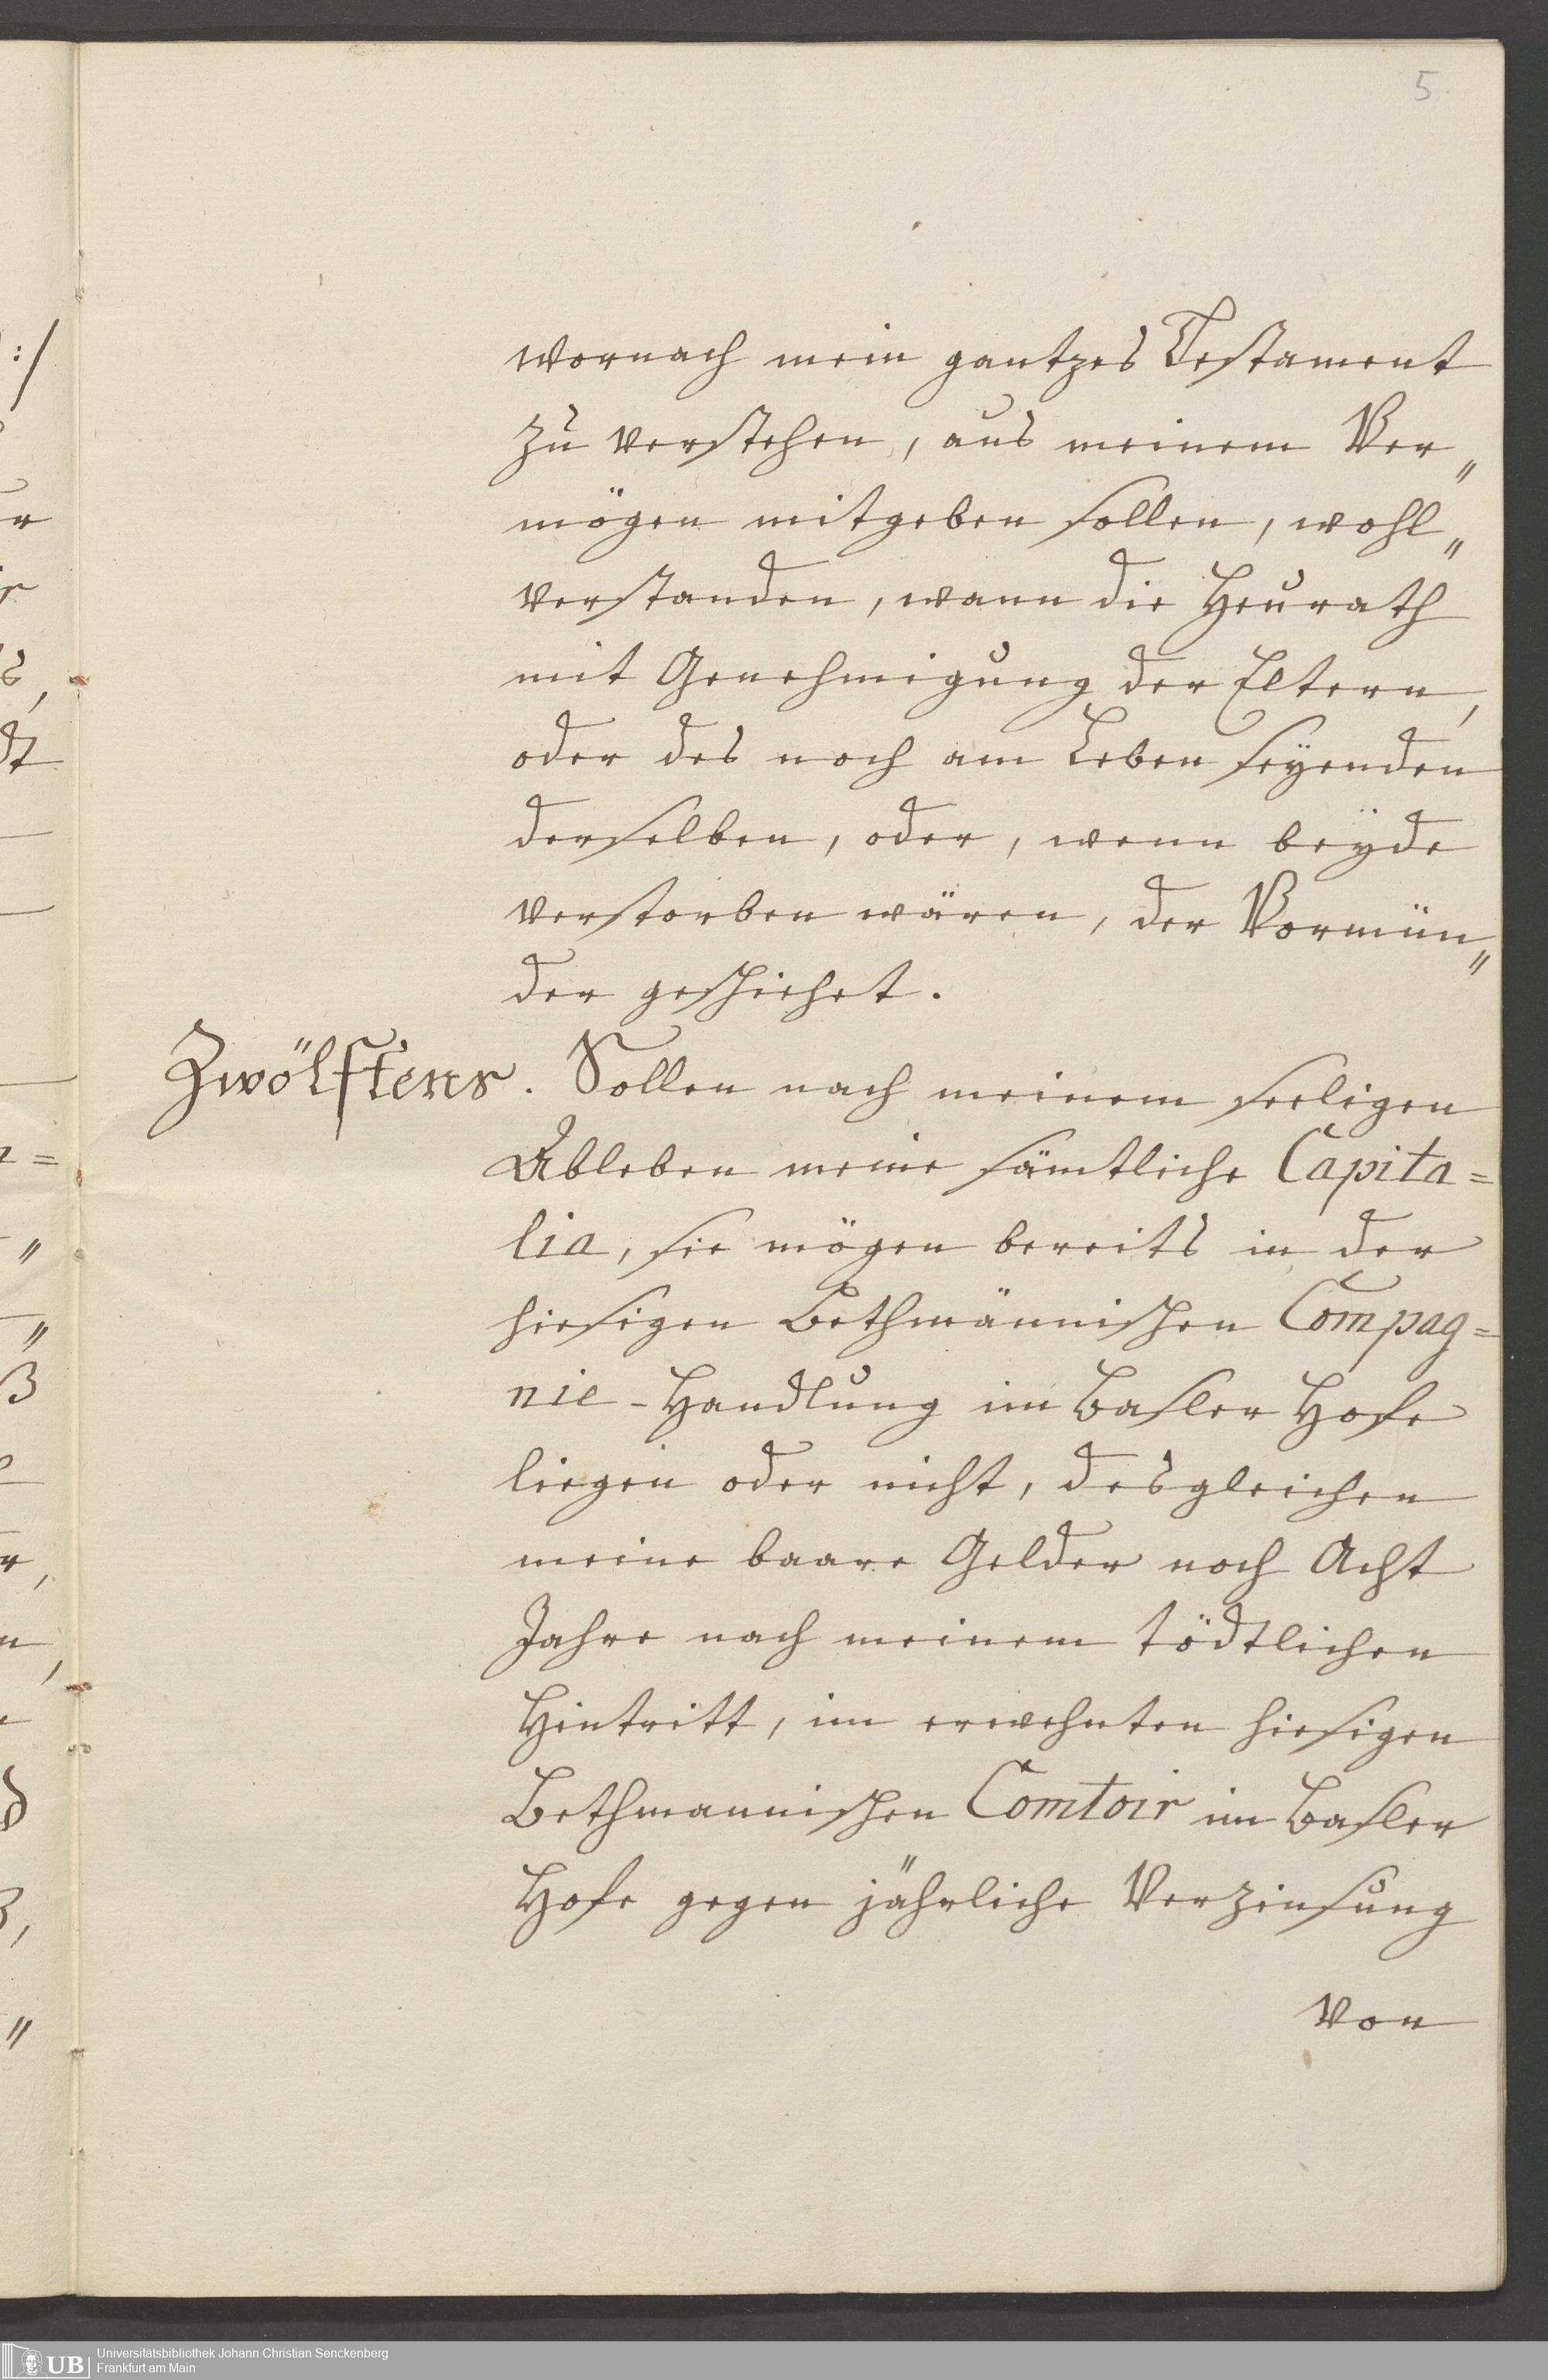 5
wornach mein gantzes Testament
zu verstehen, aus meinem Ver„
mögen mitgeben sollen, wohl„
verstanden, wann die Heurath
mit Genehmigung der Eltern,
oder des noch am Leben seÿenden
derselben, oder, wenn beÿde
verstorben wären, der Vormün„
der geschiehet.
Zwölftens. Sollen nach meinem seeligen
Ableben meine sämtliche Capita=
lia, sie mögen bereits in der
hiesigen Bethmännischen Compag=
nie-Handlung im Basler Hofe
liegen oder nicht, desgleichen
meine baare Gelder noch Acht
Jahre nach meinem tödtlichen
Hintritt, im erwehnten hiesigen
Bethmannischen Comtoir im Basler
Hofe gegen jährliche Verzinsung
von
UB
Universitätsbibliothek Johann Christian Senckenberg
Frankfurt am Main